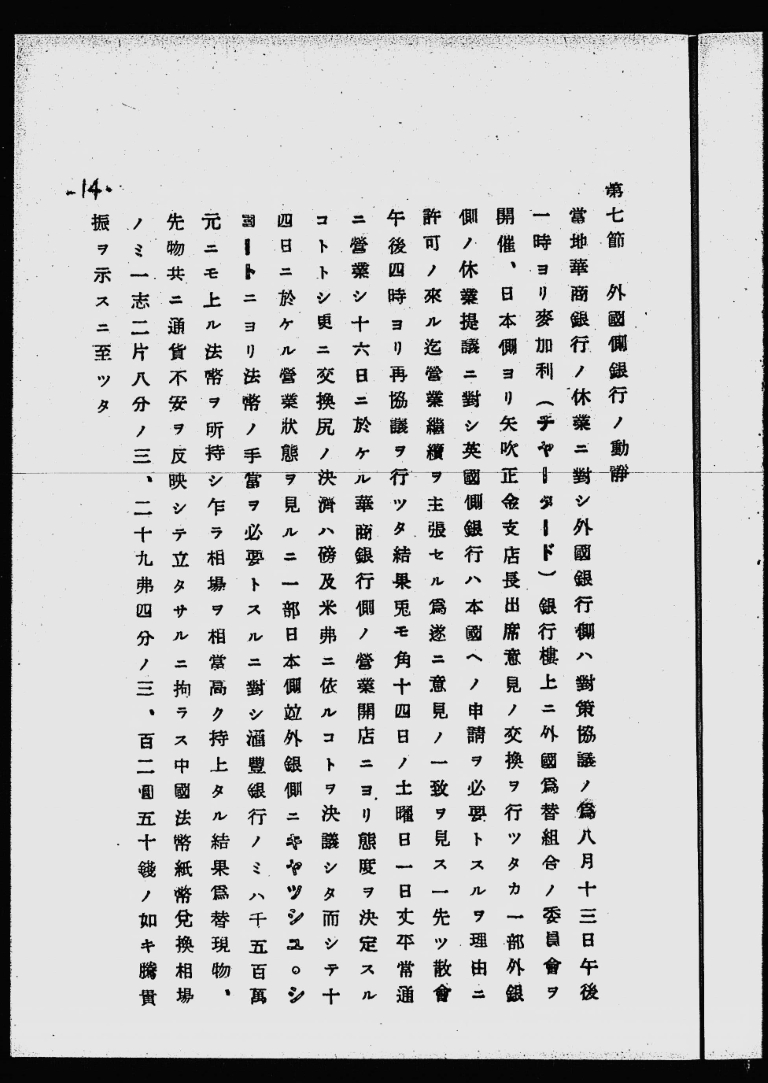 第七節　外國側銀行ノ動靜
當地華商銀行ノ休業ニ對シ外國銀行側ハ對策協議ノ爲八月十三日午後
一時ヨリ麥加利（チャータード）銀行樓上ニ外國爲替組合ノ委員會ヲ
開催、日本側ヨリ矢吹正金支店長出席意見ノ交換ヲ行ツタカ一部外銀
側ノ休業提議ニ對シ英國側銀行ハ本國ヘノ申請ヲ必要トスルヲ理由ニ
許可ノ來ル迄營業繼續ヲ主張セル爲遂ニ意見ノ一致ヲ見ス一先ツ散會
午後四時ヨリ再協議ヲ行ツタ結果兎モ角十四日ノ土曜日一日丈平常通
ニ營業シ十六日ニ於ケル華商銀行側ノ營業開店ニヨリ態度ヲ決定スル
コトトシ更ニ交換尻ノ決濟ハ磅及米弗ニ依ルコトヲ決議シタ而シテ十
四日ニ於ケル營業狀態ヲ見ルニ一部日本側竝外銀側ニキヤツシユ。シ
ヨートニヨリ法幣ノ手當ヲ必要トスルニ對シ滙豐銀行ノミハ千五百萬
元ニモ上ル法幣ヲ所持シ乍ラ相場ヲ相當高ク持上タル結果爲替現物、
先物共ニ通貨不安ヲ反映シテ立タサルニ拘ラス中國法幣紙幣兌換相場
ノミ一志二片八分ノ三、二十九弗四分ノ三、百二圓五十錢ノ如キ騰貴
振ヲ示スニ至ツタ
-14.